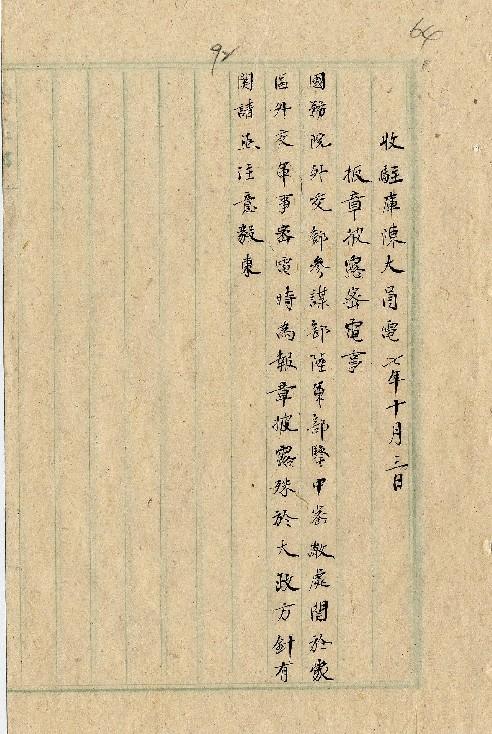 64
92
收駐庫陳大員電 七年十月三日
报章披露密電事
國務院外交部參謀部陸軍部鑒中密敝處関於蒙
區外交軍事密電時為報章披露殊於大政方針有
関請点注意毅東